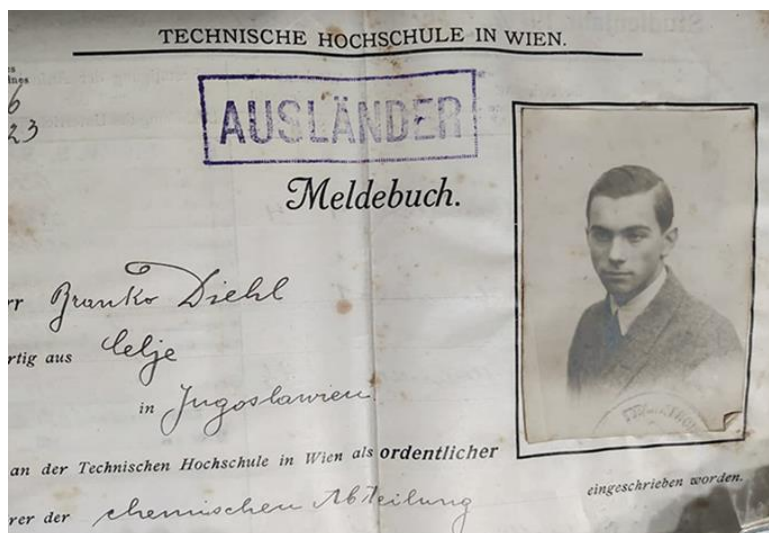 TECHNISCHE HOCHSCHULE IN WIEN.
AUSLÄNDER
23
Meldebuch.
rr Branko Diehl
rtig aus Celje
in Jugoslawien
an der Technischen Hochschule in Wien als ordentlicher
rer der chemischen Abteilung eingeschrieben worden.